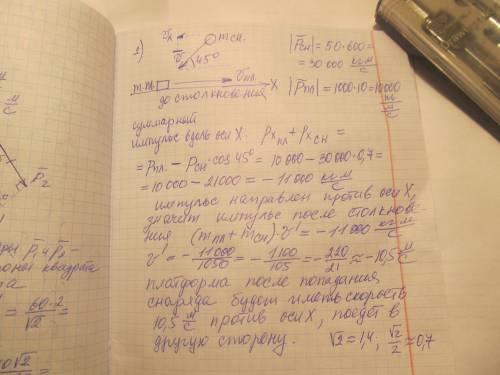 2) v̄x mсн. |P̄сн| = 50·600 =
v̄ 45° = 30 000 кг·м/с
mпл. v̄пл. X |P̄пл| = 1000·10 = 10000 кг·м/с
до столкновения
суммарный
импульс вдоль оси X: Pxпл + Pxсн =
= Pпл. − Pсн·cos45° = 10 000 − 30 000·0,7 =
= 10 000 − 21000 = − 11 000 кг·м/с
импульс направлен против оси X,
значит импульс после столкнове-
ния (mпл + mсн)·v' = − 11 000 кг·м/с
v' = − 11000/1050 = − 1100/105 = − 220/21 ≈ − 10,5 м/с
платформа после попадания
снаряда будет иметь скорость
10,5 м/с против оси X, поедет в
другую сторону. √2 = 1,4, √2/2 ≈ 0,7
м/с
P̄2
P̄1 и P̄2 −
квадрата
= 60·2/√2 =